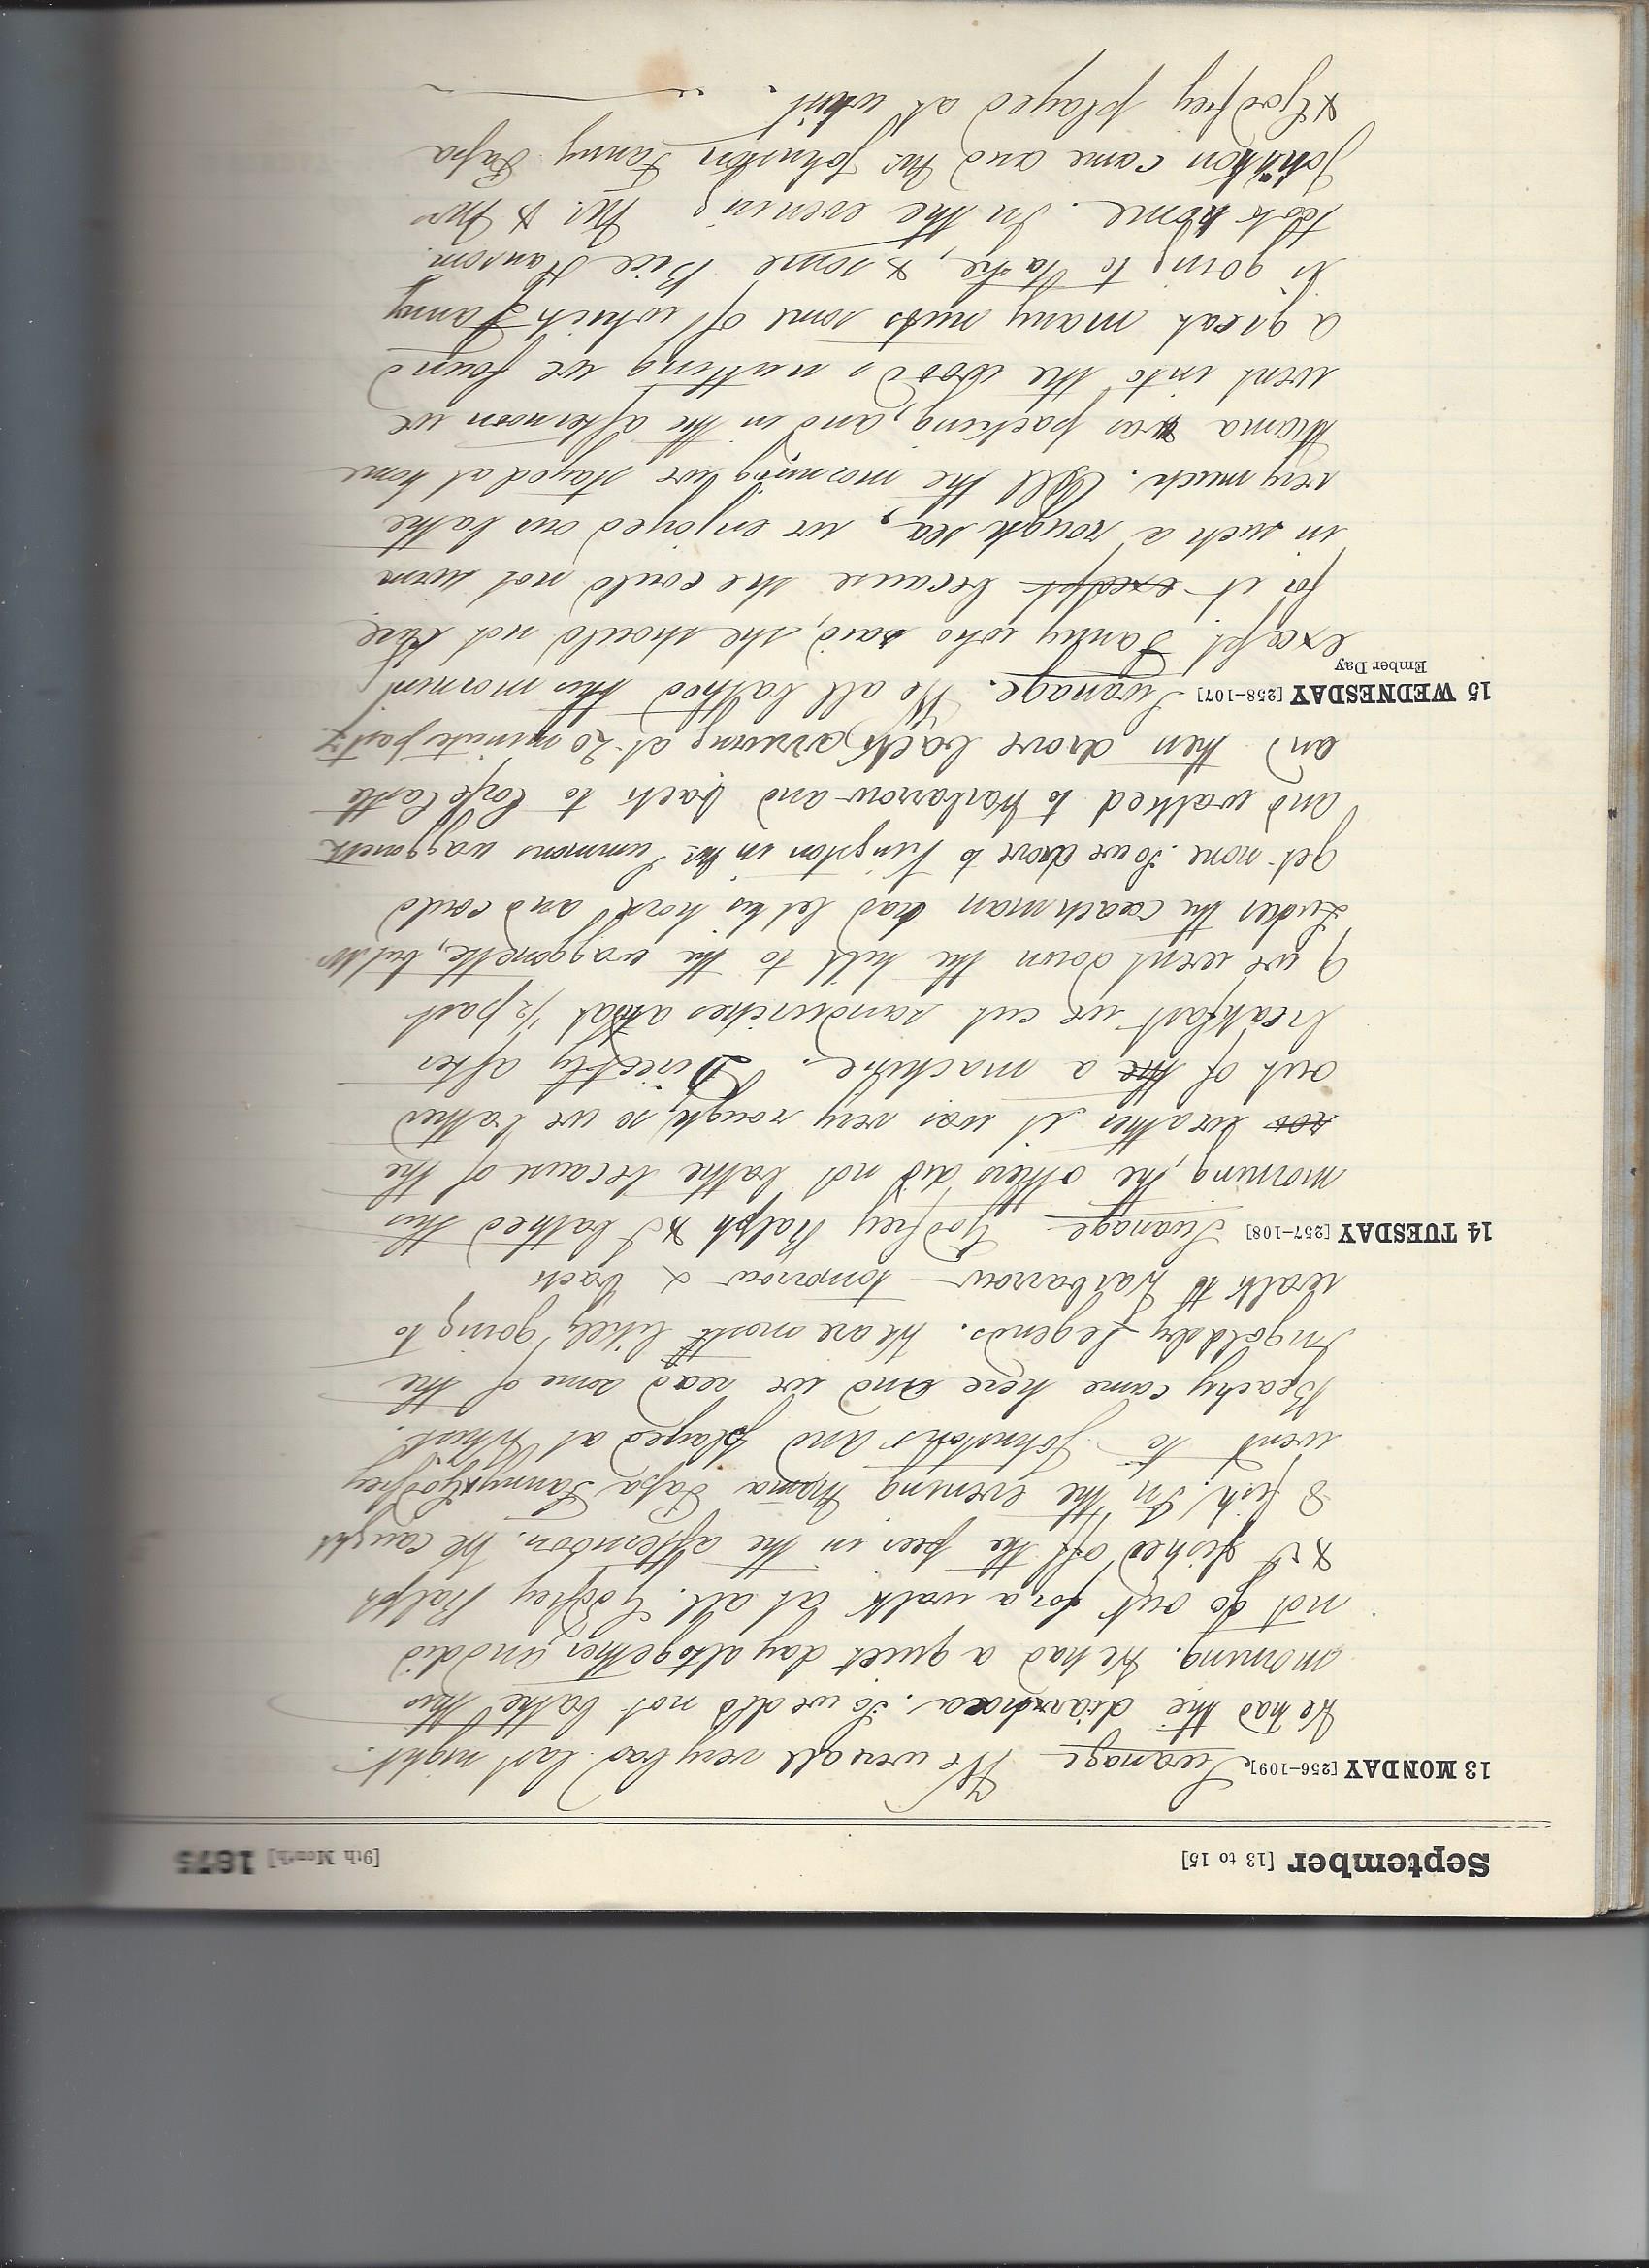 September [13 to 15] [9th Month] 1875
13 MONDAY [256-109] Swanage We were all very bad last night.
We had the diarrhœa. So we did not bathe this
morning. We had a quiet day altogether, and did
not go out for a walk at all. Godfrey Ralph
& I fished off the pier in the afternoon. We caught
8 fish. In the evening Mama Papa, Fanny & Godfrey
went to Johnstons and played at Whist.
Beachy came here and we read some of the
Ingoldsby Legends. We are most likely going to
walk to Warbarrow tomorrow & back
14 TUESDAY [257-108] Swanage Godfrey Ralph & I bathed this
morning, the others did not bathe because of the
weather it was very rough, so we bathed
out of the a machine. Directly after
breakfast we cut sandwiches & at 1/2 past
9 we went down the hill to the waggonette, but Mr
the coachman had let his horse and could
get none. So we drove to Kingston in Mr. waggonette
and walked to Warbarrow and back to Corfe Castle
and then drove back, arriving at 20 minutes past 7.
15 WEDNESDAY [258-107] Swanage. We all bathed this morning
Ember Day
except Fanny who said, she should not care
for it exedpt because she could not swim
in such a rough sea, we enjoyed our bathe
very much. All the morning we stayed at home
Mama was packing, and in the afternoon we
went into the woods nutting we found
a great many nuts some of which Fanny
is going to take, & some Bice Hansom
took home. In the evening Mr. & Mrs
Johnston came and Mr Johnston Fanny Papa
& Godfrey played at whist.